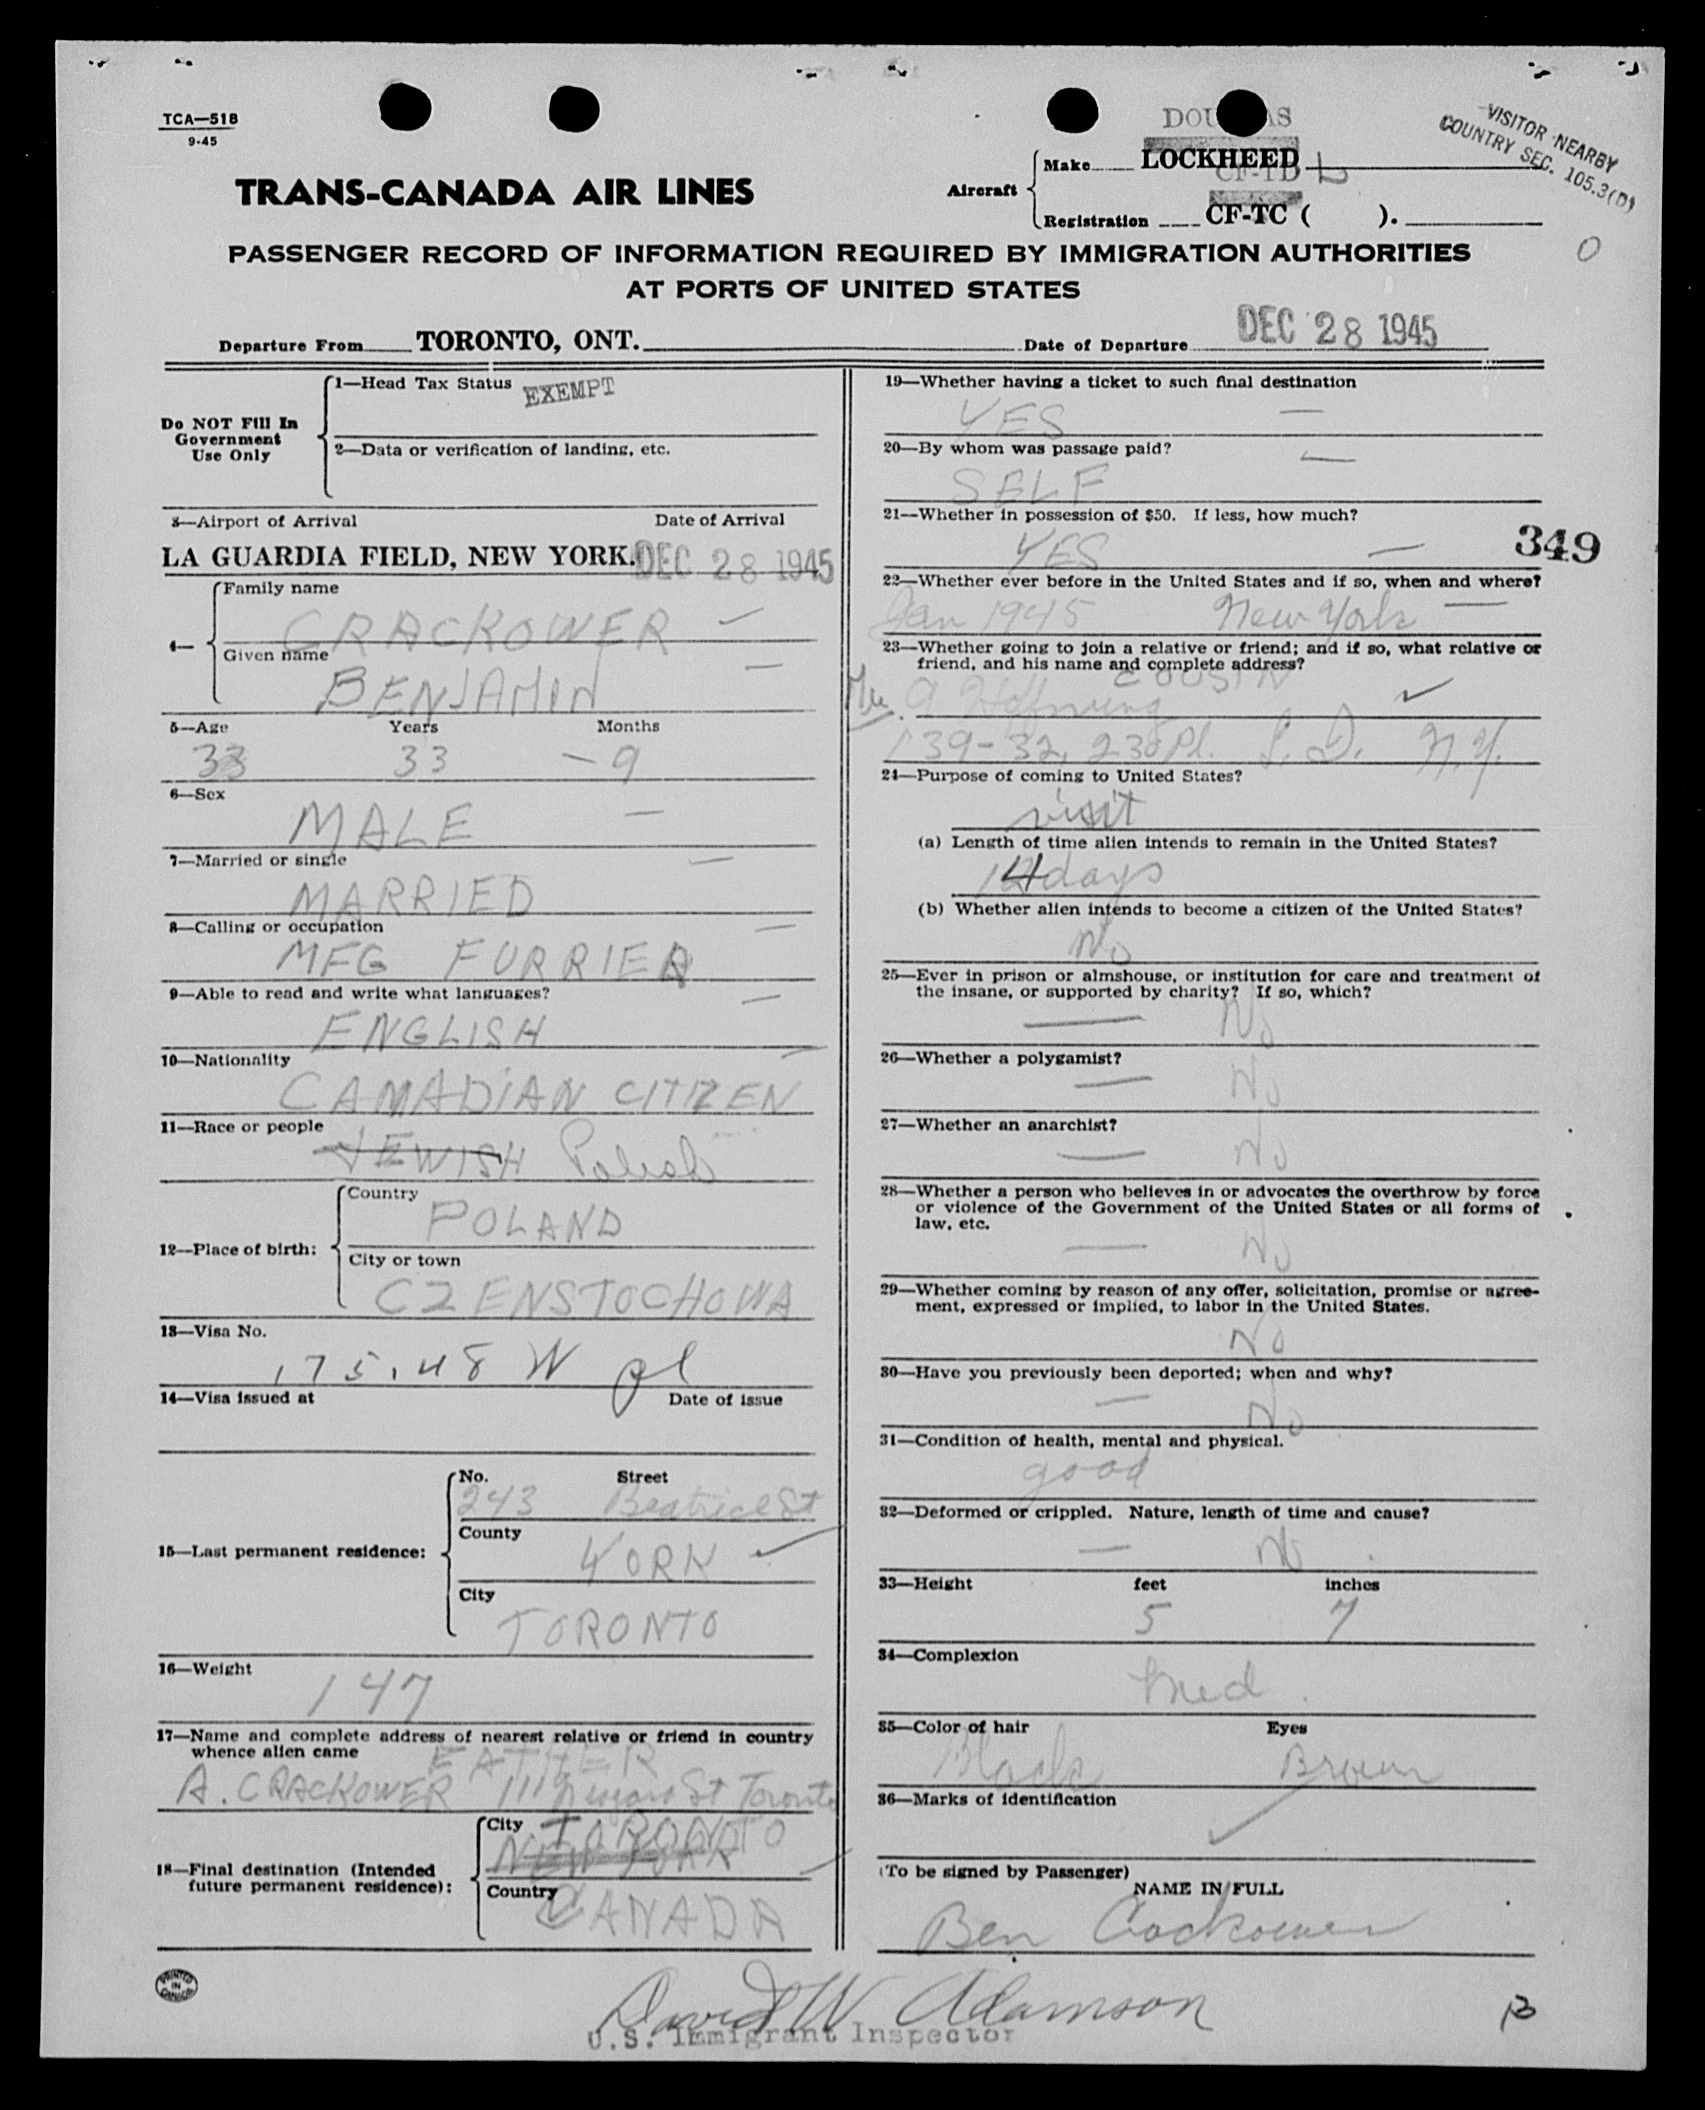 TCA—518
9-45
TRANS-CANADA AIR LINES
Aircraft
DOUGLAS
Make LOCKHEED
CF-TD L
Registration CF-TC ( ).
VISITOR NEARBY
COUNTRY SEC. 105.3(D)
O
PASSENGER RECORD OF INFORMATION REQUIRED BY IMMIGRATION AUTHORITIES
AT PORTS OF UNITED STATES
Departure From TORONTO, ONT. Date of Departure DEC 28 1945
Do NOT Fill In
Government
Use Only
1—Head Tax Status EXEMPT
2—Data or verification of landing, etc.
3—Airport of Arrival Date of Arrival
LA GUARDIA FIELD, NEW YORK. DEC 28 1945
4—
Family name
CRACKOWER
Given name
BENJAMIN
5—Age Years Months
33 33 - 9
6—Sex
MALE
7—Married or single
MARRIED
8—Calling or occupation
MFG FURRIER
9—Able to read and write what languages?
ENGLISH
10—Nationality
CANADIAN CITIZEN
11—Race or people
JEWISH Polish
12—Place of birth:
Country
POLAND
City or town
CZENSTOCHOWA
13—Visa No.
175.48 W pl
14—Visa issued at Date of issue
15—Last permanent residence:
No. Street
243 Beatrice St
County
YORK
City
TORONTO
16—Weight
147
17—Name and complete address of nearest relative or friend in country
whence alien came
FATHER
A. CRACKOWER 111 St Toronto
18—Final destination (Intended
future permanent residence):
City TORONTO
NEW YORK
Country
CANADA
19—Whether having a ticket to such final destination
YES
20—By whom was passage paid?
SELF
21—Whether in possession of $50. If less, how much?
YES
349
22—Whether ever before in the United States and if so, when and where?
Jan 1945 New York
23—Whether going to join a relative or friend; and if so, what relative or
friend, and his name and complete address?
COUSIN
A
139-32, 230 Pl. N.Y.
24—Purpose of coming to United States?
visit
(a) Length of time alien intends to remain in the United States?
14 days
(b) Whether alien intends to become a citizen of the United States?
No
25—Ever in prison or almshouse, or institution for care and treatment of
the insane, or supported by charity? If so, which?
No
26—Whether a polygamist?
No
27—Whether an anarchist?
No
28—Whether a person who believes in or advocates the overthrow by force
or violence of the Government of the United States or all forms of
law, etc.
No
29—Whether coming by reason of any offer, solicitation, promise or agree-
ment, expressed or implied, to labor in the United States.
No
30—Have you previously been deported; when and why?
No
31—Condition of health, mental and physical.
good
32—Deformed or crippled. Nature, length of time and cause?
No
33—Height feet inches
5 7
34—Complexion
Med.
35—Color of hair Eyes
Black Brown
36—Marks of identification
(To be signed by Passenger)
NAME IN FULL
Ben Crackower
PRINTED
IN
CANADA
David W Adamson
U.S. Immigrant Inspector